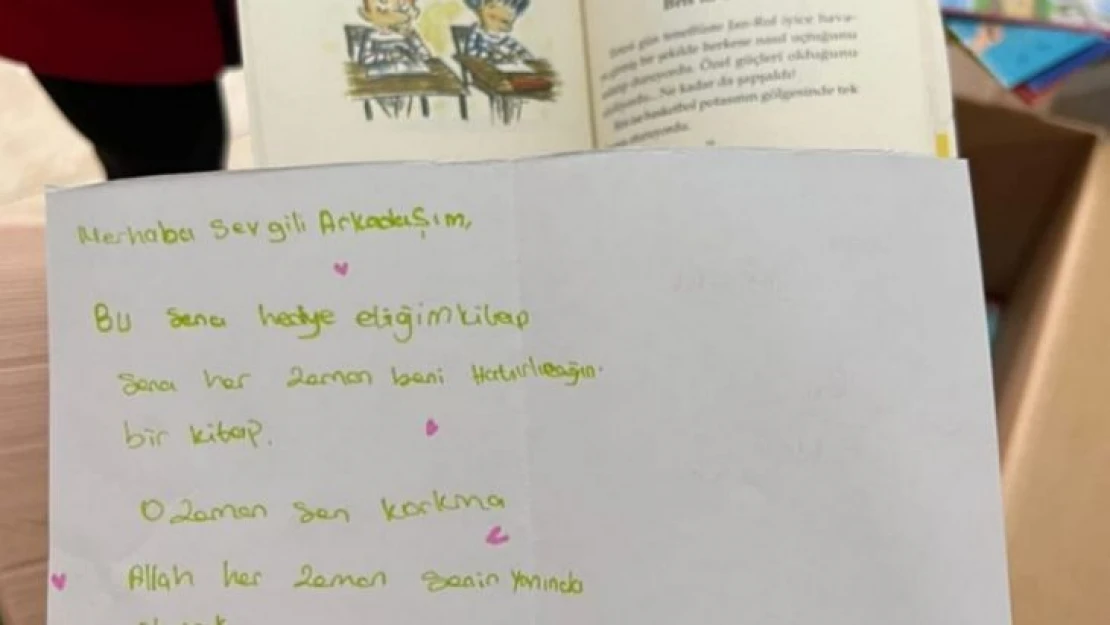 Ben
Ertesi gün teneffüste Jan-Rof iyice hava-
bir şekilde herkese nasıl uçtuğunu
duruyordu. Özel güçleri olduğunu
Ne kadar da şapşaldı!
basketbol potasının gölgesinde tek
Merhaba Sevgili ArkadaŞım,
Bu sana hediye eliğim kitap
sana her zaman beni Hatırlıcağın.
bir kitap.
O zaman sen korkma
Allah her zaman senin yanında
olacak